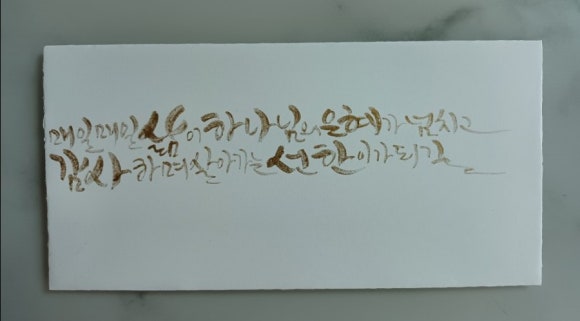 매일매일 삶이 하나님의 은혜가 넘치고
감사하며 살아가는 선한이가 되길